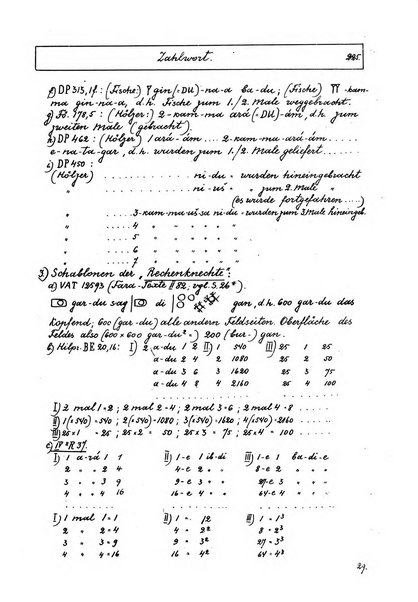 Zahlwort. 225.
f) DP 313, 1f.: (Fische) 𒁹 gin(=DU)-na-a ba-du; (Fische) 𒈫 -kam-
ma gin-na-a, d.h. Fische zum 1./2. Male weggebracht.
g) Fö. 178,5: (Hölzer): 2-kam-ma ará (=DU)-ám, d.h. zum
zweiten Male (gebracht).
h) DP 462: (Hölzer) 1 ará-ám.... 2-kam-ma-ará-ám.....
e-na-ta-gar, d.h. wurden zum 1./2. Male geliefert......
i) DP 450:
(Hölzer) ........ ni-du = wurden hineingebracht
" ........ ni-uš = " zum 2. Male "
(es wurde fortgefahren....)
" ......3-kam-ma-uš-sa ni-du = wurden zum 3. Male hineingeb.
" ......4 " " " " " "
" ......5 " " " " " "
" ......6 " " " " " "
" ......7 " " " " " "
3) Schablonen der "Rechenknechte":
a) VAT 12593 (Fara-Texte II 82, vgl. S. 26*).
gar-du sag di gan, d.h. 600 gar-du das
Kopfend; 600 (gar-du) alle andern Feldseiten. Oberfläche des
Feldes also (600 x 600 gar-du² =) 200 (bur-) gan.
b) Hilpr. BE 20,16: I) 2 a-du 1 2 II) 1 540 III) 25 1 25
a-du 2 4 2 1080 25 2 50
a-du 3 6 3 1620 25 3 75
a-du 4 8 4 2160 25 4 100
I) 2 mal 1 = 2; 2 mal 2 = 4; 2 mal 3 = 6; 2 mal 4 = 8 ......
II) 1 (= 540) = 540; 2 (x540) = 1080; 3 (x540) = 1620; 4 (x540) = 2160 ......
III) 25 x 1 = 25; 25 x 2 = 50; 25 x 3 = 75; 25 x 4 = 100 ......
c) IV² R 37.
I) 1 a-rá 1 1 II) 1-e 1 ib-di III) 1-e 1 ba-di-e
2 " 2 4 4-e 2 " 8-e 2 "
3 " 3 9 9-e 3 " 27-e 3 "
4 " 4 16 16-e 4 " 64-e 4 "
I) 1 mal 1 = 1 II) 1 = 1² III) 1 = 1³
2 " 2 = 4 4 = 2² 8 = 2³
3 " 3 = 9 9 = 3² 27 = 3³
4 " 4 = 16 16 = 4² 64 = 4³
29.